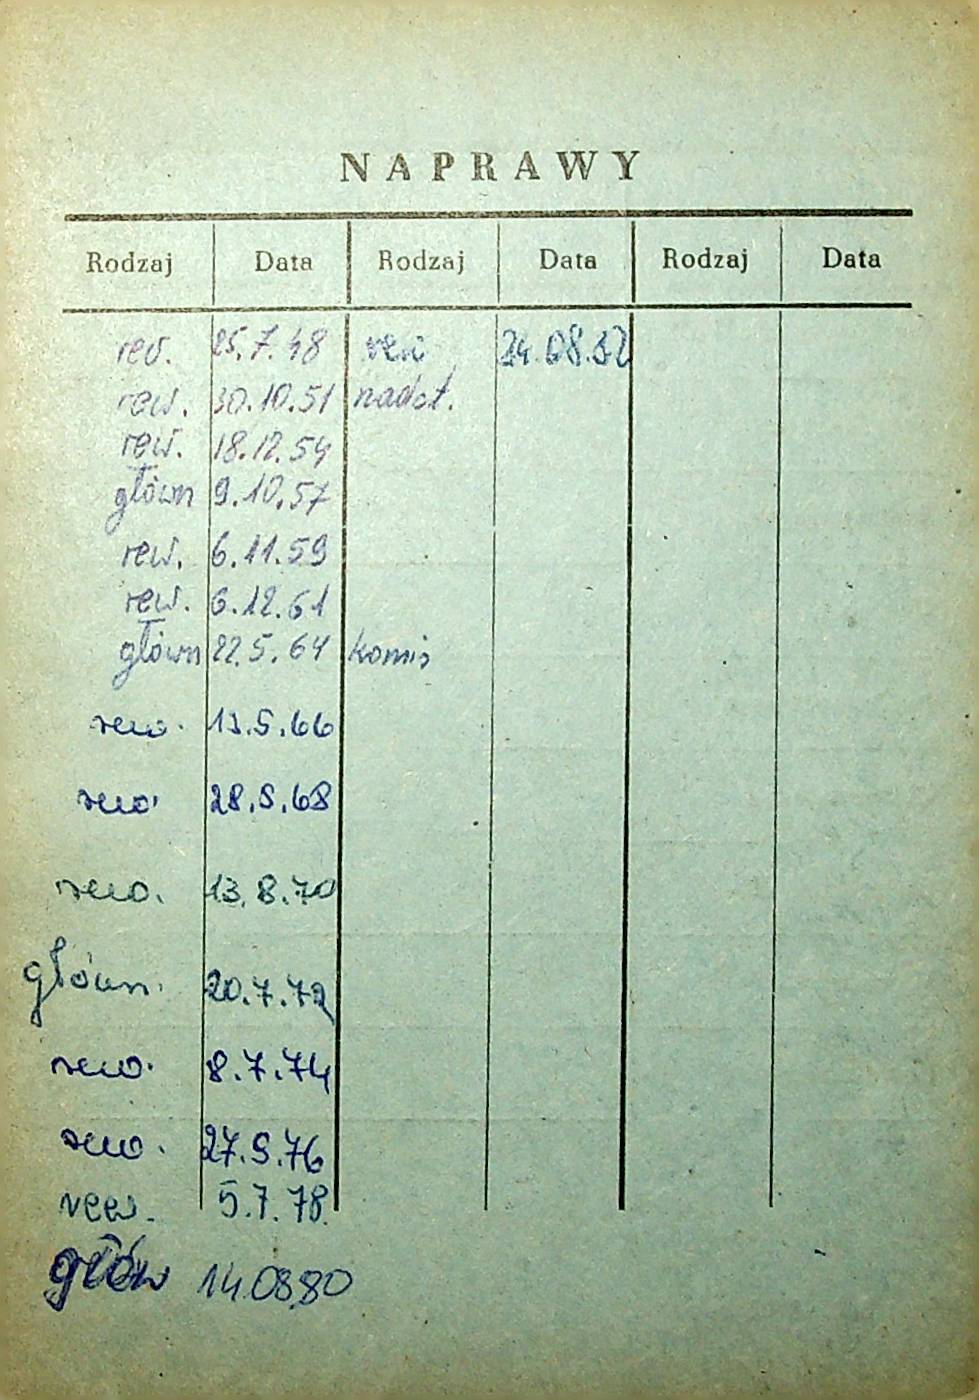 NAPRAWY
Rodzaj Data Rodzaj Data Rodzaj Data
rew. 25.7.48 rew 24.08.82
rew. 30.10.51 nadst.
rew. 18.12.54
główn 9.10.57
rew. 6.11.59
rew. 6.12.61
główn 22.5.64 komis
rew. 13.5.66
rew. 28.5.68
rew. 13.8.70
główn. 20.7.72
rew. 8.7.74
rew. 27.5.76
rew. 5.7.78.
głów 14.08.80